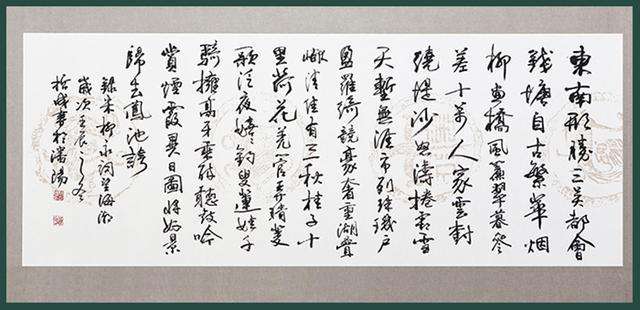 東南形勝三吴都會
錢塘自古繁華烟
柳畫橋風簾翠幕參
差十萬人家雲樹
繞堤沙怒濤捲霜雪
天塹無涯市列珠璣户
盈羅綺競豪奢重湖疊
巘清佳有三秋桂子十
里荷花羌管弄晴菱
歌泛夜嬉〻釣叟蓮娃千
騎擁高牙乘醉聽鼓吟
賞煙霞異日圖將好景
歸去鳳池誇
錄宋柳永詞望海潮
歲次壬辰之冬
哲成書於瀋陽